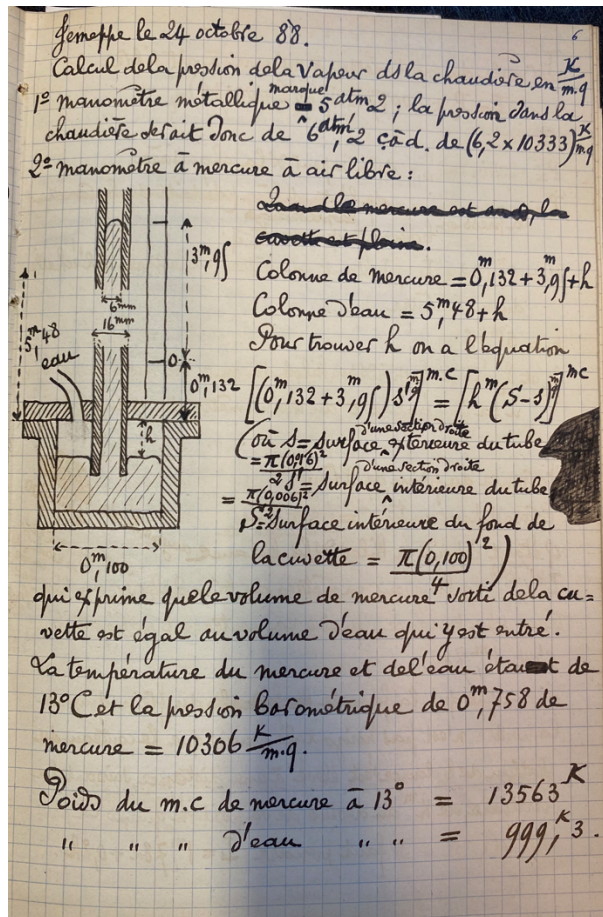 6
Jemeppe le 24 octobre 88.
Calcul de la pression de la vapeur ds la chaudière en K/m.q
1º manomètre métallique marque 5 atm 2 ; la pression dans la
chaudière serait donc de 6 atm, 2 çàd. de (6,2 x 10333) K/m.q
2º manomètre à mercure à air libre :
Quand le mercure est , la
cuvette est pleine.
Colonne de mercure = 0m,132 + 3m,95 + h
Colonne d'eau = 5m,48 + h
Pour trouver h on a l'équation
[(0m,132 + 3m,95) s' m.q]m.c = [hm (S-s) m.q]mc
(où s = surface d'une section droite extérieure du tube
= π(0,016)²
s' = surface d'une section droite intérieure du tube
= π(0,006)²
S = surface intérieure du fond de
la cuvette = π(0,100)²/4)
3m,95
6mm
16mm
5m,48
eau
0
0m,132
h
0m,100
qui exprime que le volume de mercure sorti de la cu=
vette est égal au volume d'eau qui y est entré.
La température du mercure et de l'eau étant de
13°C et la pression barométrique de 0m,758 de
mercure = 10306 K/m.q.
Poids du m.c de mercure à 13° = 13563K
" " " d'eau " " = 999,K3.